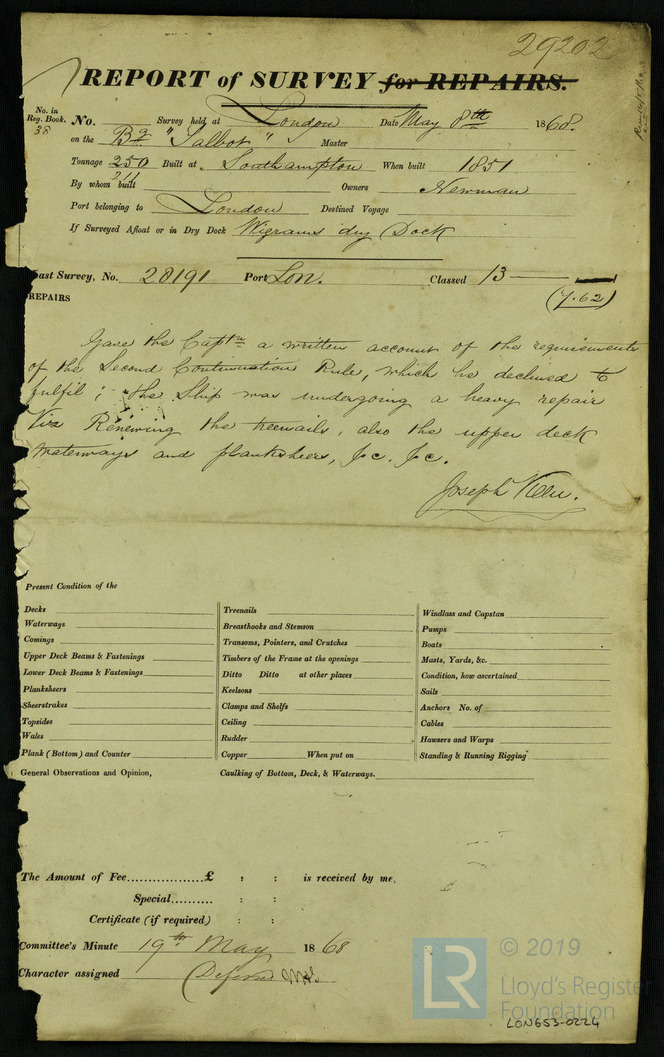 29202
REPORT of SURVEY for REPAIRS.
No. in
Reg. Book.
38
No. Survey held at London Date May 8th 1868.
on the Bg "Talbot" Master
Tonnage 250 Built at Southampton When built 1851
211
By whom built Owners Newman
Port belonging to London Destined Voyage
If Surveyed Afloat or in Dry Dock Wigrams dry Dock
ast Survey, No. 20191 Port Lon. Classed 13
(7.62)
REPAIRS
Gave the Captn a written account of the requirements
of the Second Continuation Rule, which he declined to
fulfil; the Ship was undergoing a heavy repair
Viz Renewing the treenails, also the upper deck
Waterways and planksheers, &c. &c.
Joseph
Present Condition of the
Decks
Waterways
Comings
Upper Deck Beams & Fastenings
Lower Deck Beams & Fastenings
Planksheers
Sheerstrakes
Topsides
Wales
Plank (Bottom) and Counter
Treenails
Breasthooks and Stemson
Transoms, Pointers, and Crutches
Timbers of the Frame at the openings
Ditto Ditto at other places
Keelsons
Clamps and Shelfs
Ceiling
Rudder
Copper When put on
Windlass and Capstan
Pumps
Boats
Masts, Yards, &c.
Condition, how ascertained
Sails
Anchors No. of
Cables
Hawsers and Warps
Standing & Running Rigging
General Observations and Opinion, Caulking of Bottom, Deck, & Waterways.
The Amount of Fee................£ : : is received by me,
Special.......... : :
Certificate (if required) : :
Committee's Minute 19th May 1868
Character assigned Deferred
LR
© 2019
Lloyd's Register
Foundation
LON653-0224